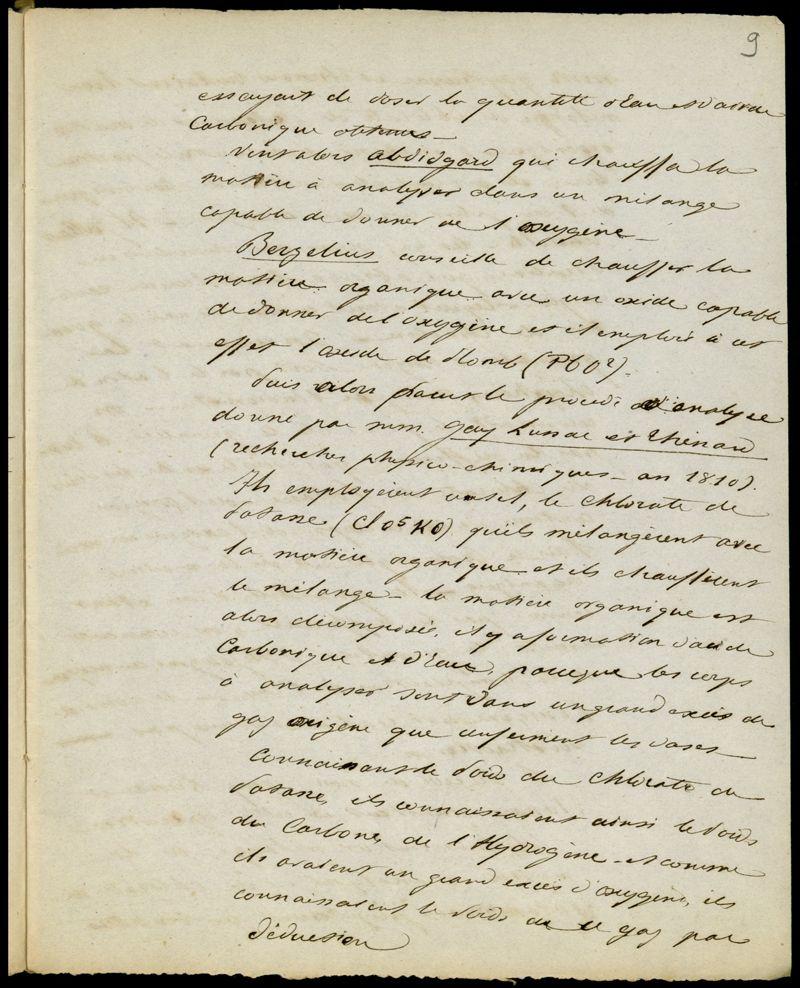 9
essayait de doser la quantité d'Eau et d'acide
Carbonique obtenus_
Vint alors Abidgard qui chauffa la
matière à analyser dans un mélange
capable de donner de l'oxygène_
Bergelius conseilla de chauffer la
matière organique avec un oxide capable
de donner de l'oxygène et il emploie à cet
effet l'oxide de Plomb (PbO²).
Puis alors parut le procédé d'analyse
donné par mm. Gay Lussac et Thénard
(recherches physico-chimiques_ an 1810).
Ils employèrent un sel, le Chlorate de
Potasse (ClO⁵KO) qu'ils mélangèrent avec
la matière organique et ils chauffèrent
le mélange_ la matière organique est
alors décomposée, il y a formation d'acide
Carbonique et d'Eau, parceque les corps
à analyser sont dans un grand excès de
gaz oxigène que renferment les vases_
Connaissant le Poids du Chlorate de
Potasse, ils connaissaient ainsi le Poids
du Carbone, de l'Hydrogène et comme
ils avaient un grand excès d'oxygène, ils
connaissaient le Poids de ce gaz par
déduction